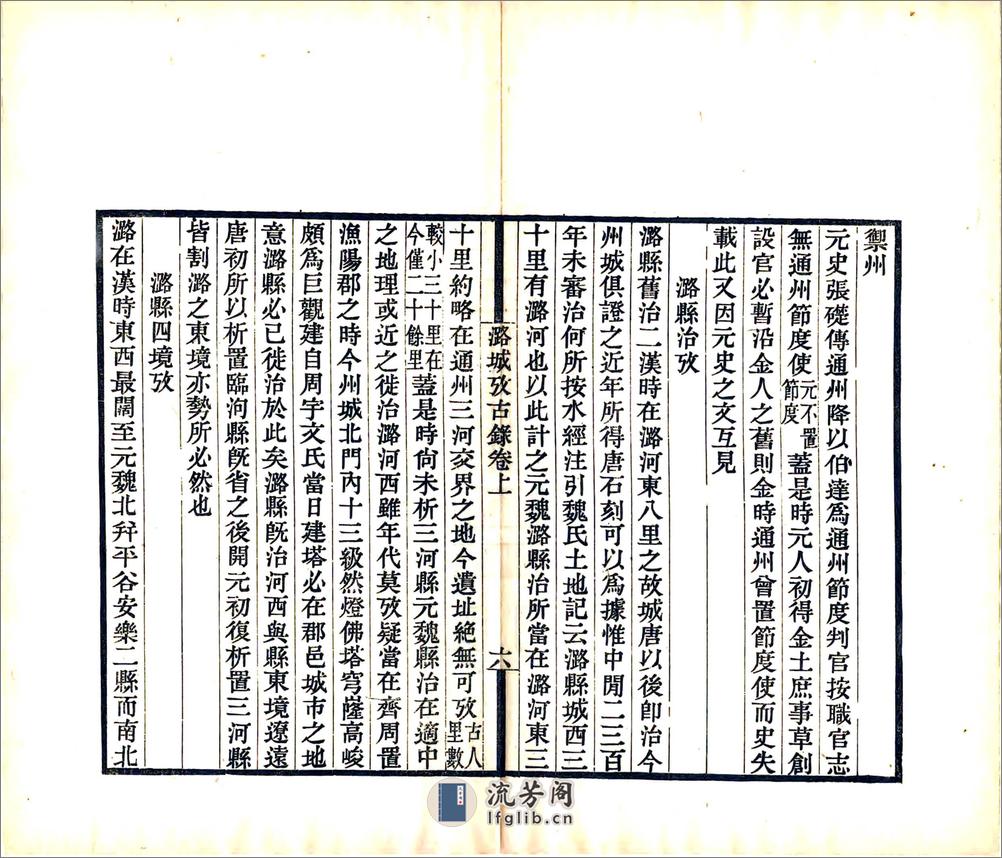 禦州
元史張礎傳通州降以伯達爲通州節度判官按職官志
無通州節度使元不置節度蓋是時元人初得金土庶事草創
設官必暫沿金人之舊則金時通州曾置節度使而史失
載此又因元史之文互見
潞縣治攷
潞縣舊治二漢時在潞河東八里之故城唐以後卽治今
州城俱證之近年所得唐石刻可以爲據惟中閒二三百
年未審治何所按水經注引魏氏土地記云潞縣城西三
十里有潞河也以此計之元魏潞縣治所當在潞河東三
潞城攷古錄卷上
六
十里約略在通州三河交界之地今遺址絕無可攷古人里數
較小三十里在今僅二十餘里蓋是時尙未析三河縣元魏縣治在適中
之地理或近之徙治潞河西雖年代莫攷疑當在齊周置
漁陽郡之時今州城北門內十三級然燈佛塔穹窿高峻
頗爲巨觀建自周宇文氏當日建塔必在郡邑城市之地
意潞縣必已徙治於此矣潞縣旣治河西與縣東境遼遠
唐初所以析置臨泃縣旣省之後開元初復析置三河縣
皆割潞之東境亦勢所必然也
潞縣四境攷
潞在漢時東西最闊至元魏北幷平谷安樂二縣而南北
流芳阁
lfglib.cn